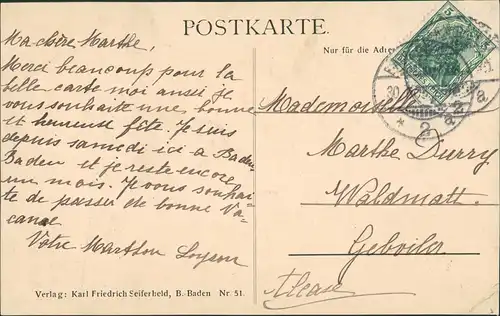 POSTKARTE.
Nur für die Adresse
Ma chère Marthe,
Merci beaucoup pour la
belle carte moi aussi je
vous souhaite une bonne
et heureuse fête. Je suis
depuis samedi ici a Baden-
Baden et je reste encore
un mois. Je vous souhai-
te de passer de bonne Va-
cance
Votre Marthon
Mademoiselle
Marthe Durry
Waldmatt.
Gebviler
Alsace
Verlag: Karl Friedrich Seiferheld, B.-Baden Nr. 51.
5
30
* 2a